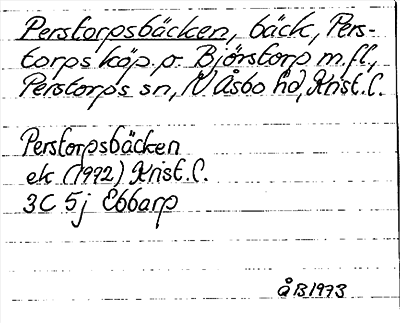 Perstorpsbäcken, bäck, Pers-
torps köp. o. Björstorp m.fl.,
Perstorps sn, N Åsbo hd, Krist. l.
Perstorpsbäcken
ek (1972) Krist. l.
3C 5j Ebbarp
åB1973